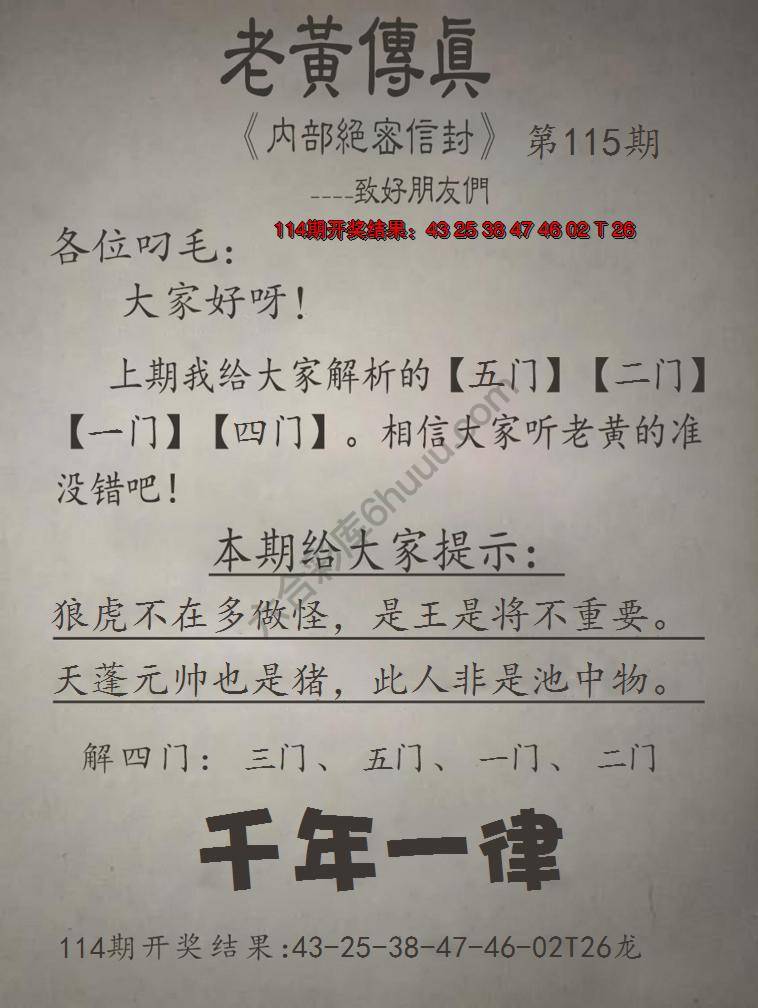 老黃傳真
《内部絕密信封》 第115期
----致好朋友們
114期开奖结果：43 25 38 47 46 02 T 26
各位叼毛：
大家好呀！
上期我给大家解析的【五门】【二门】
【一门】【四门】。相信大家听老黄的准
没错吧！
本期给大家提示：
狼虎不在多做怪，是王是将不重要。
天蓬元帅也是猪，此人非是池中物。
解四门： 三门、 五门、 一门、 二门
千年一律
114期开奖结果:43-25-38-47-46-02T26龙
六合彩库6huuu.com